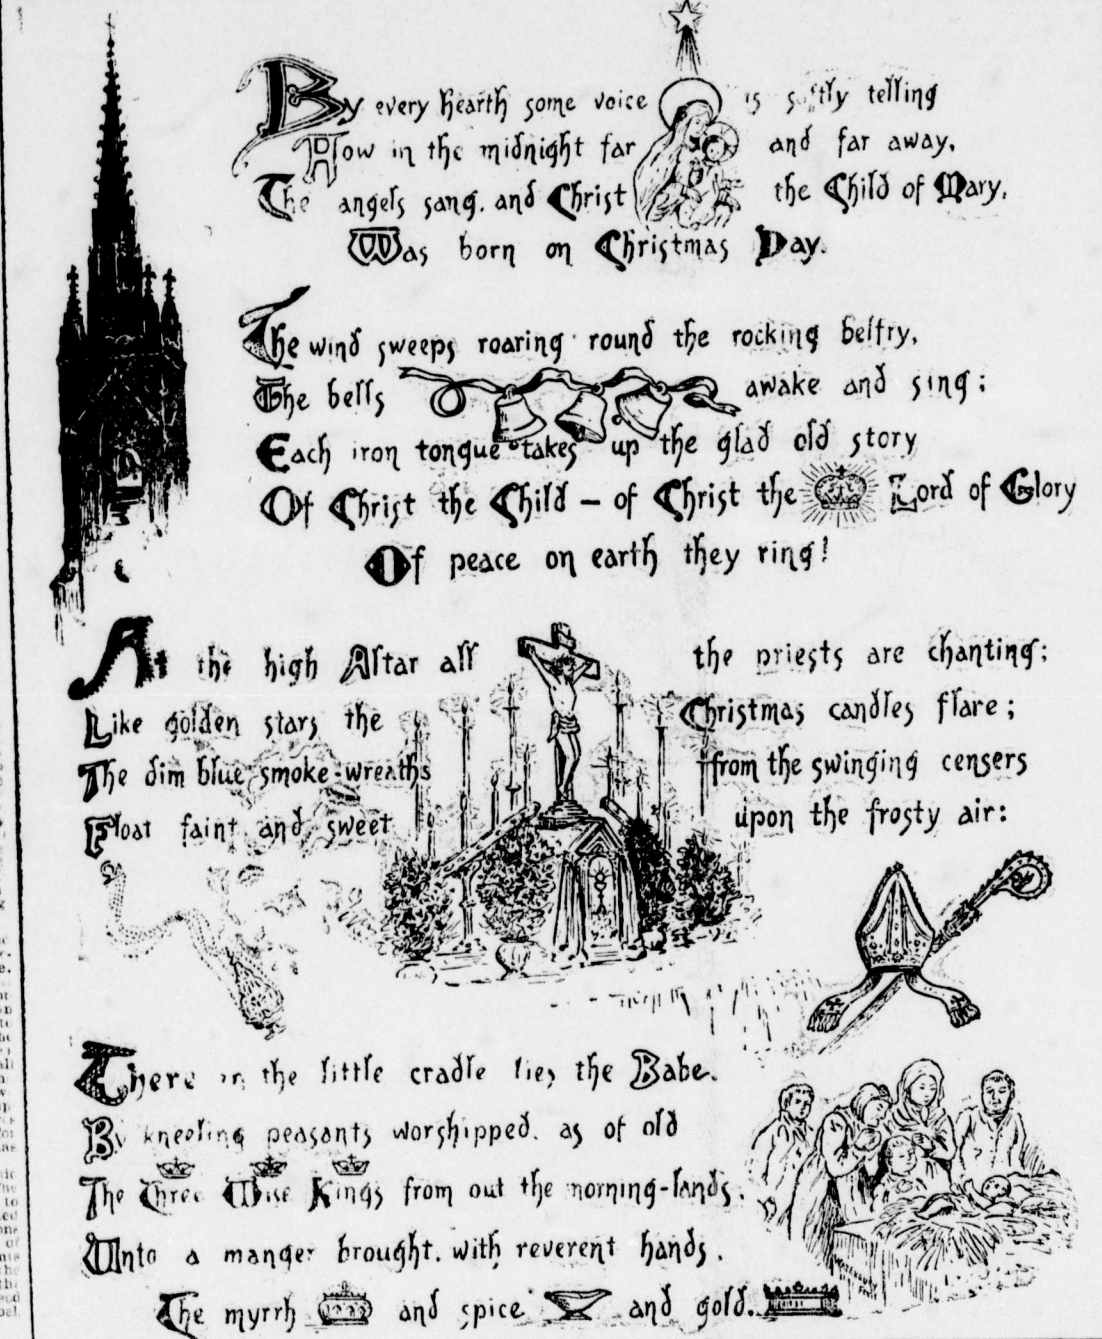 By every hearth some voice is softly telling
How in the midnight far and far away,
The angels sang, and Christ the Child of Mary,
Was born on Christmas Day.
The wind sweeps roaring round the rocking belfry,
The bells awake and sing;
Each iron tongue takes up the glad old story
Of Christ the Child – of Christ the Lord of Glory
Of peace on earth they ring!
At the high Altar all the priests are chanting:
Like golden stars the Christmas candles flare;
The dim blue smoke-wreaths from the swinging censers
Float faint and sweet upon the frosty air:
There in the little cradle lies the Babe.
By kneeling peasants worshipped, as of old
The Three Wise Kings from out the morning-lands,
Unto a manger brought, with reverent hands,
The myrrh and spice and gold.